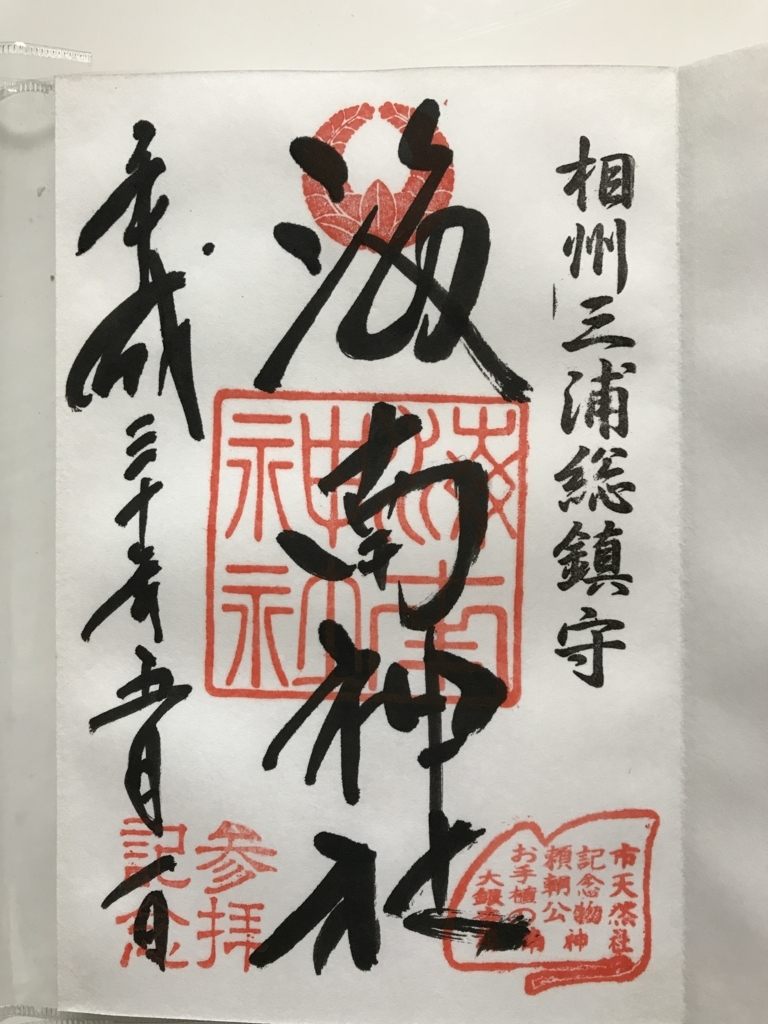 相州三浦総鎮守
海南神社
平成三十年五月一日
海南
神社
参拝
記念
市天然
記念物
頼朝公
お手植の
大銀杏
海南神社